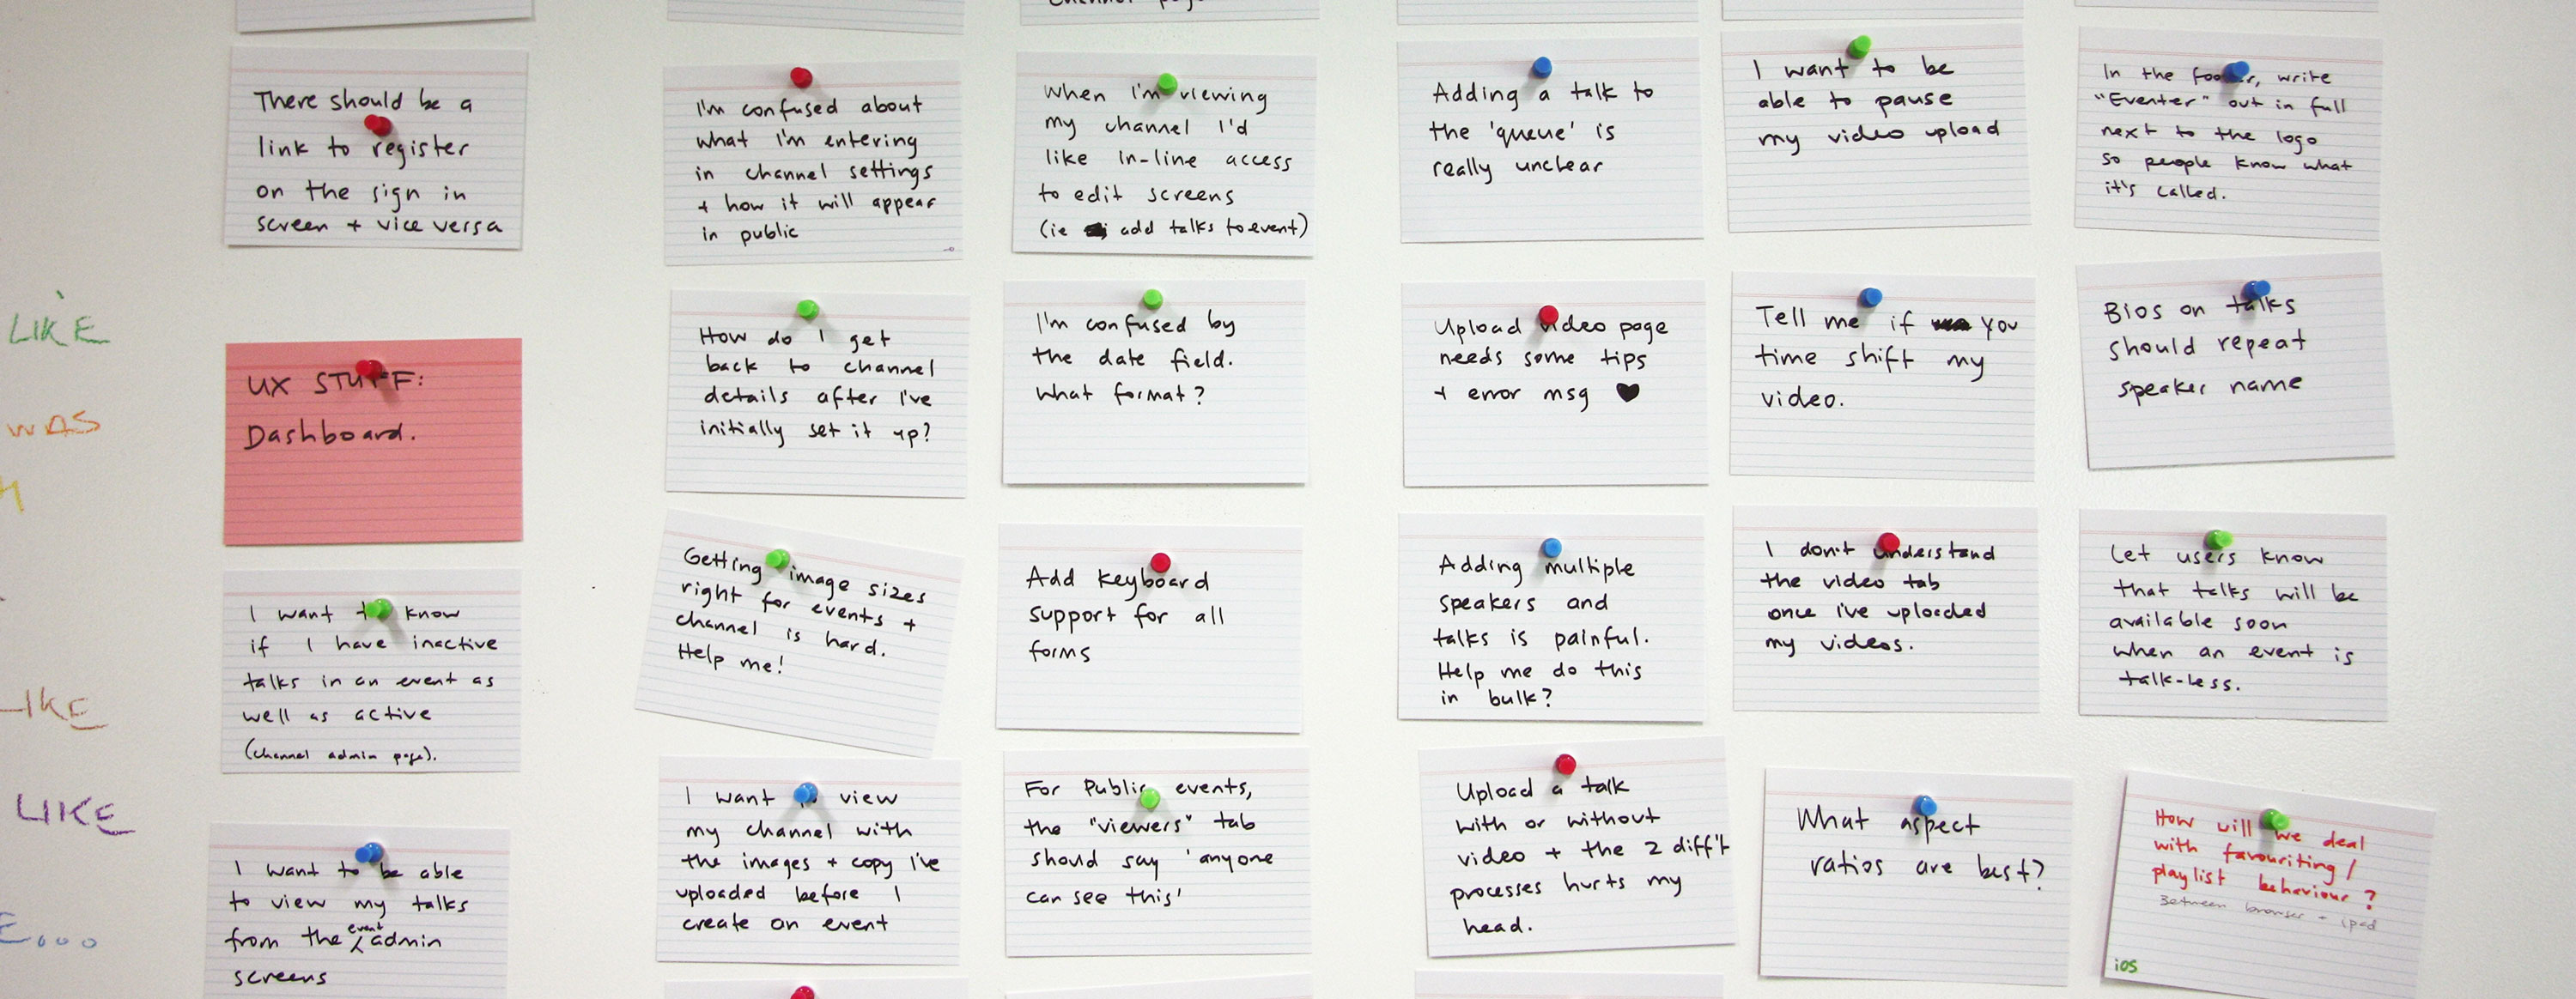 channel page
There should be a
link to register
on the sign in
screen + vice versa
UX STUFF:
Dashboard.
I want to know
if I have inactive
talks in an event as
well as active
(channel admin page).
I want to be able
to view my talks
from the event admin
screens
I'm confused about
what I'm entering
in channel settings
+ how it will appear
in public
How do I get
back to channel
details after I've
initially set it up?
Getting image sizes
right for events +
channel is hard.
Help me!
I want to view
my channel with
the images + copy I've
uploaded before I
create an event
When I'm viewing
my channel I'd
like in-line access
to edit screens
(ie add talks to event)
I'm confused by
the date field.
What format?
Add keyboard
support for all
forms
For Public events,
the "viewers" tab
should say 'anyone
can see this'
Adding a talk to
the 'queue' is
really unclear
Upload video page
needs some tips
+ error msg ♥
Adding multiple
speakers and
talks is painful.
Help me do this
in bulk?
Upload a talk
with or without
video + the 2 diff't
processes hurts my
head.
I want to be
able to pause
my video upload
Tell me if you
time shift my
video.
I don't understand
the video tab
once I've uploaded
my videos.
What aspect
ratios are best?
In the footer, write
"Eventer" out in full
next to the logo
so people know what
it's called.
Bios on talks
should repeat
speaker name
Let users know
that talks will be
available soon
when an event is
talk-less.
How will we deal
with favouriting /
playlist behaviour?
Between browser + ipad
iOS
LIKE
WAS
LIKE
LIKE
E...